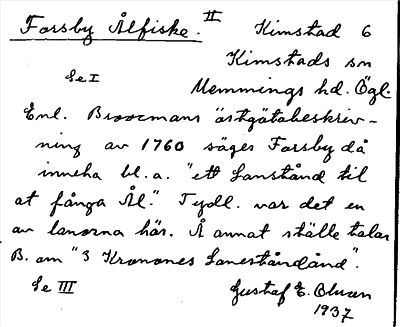 Forsby Ålfiske. II Kimstad 6
Kimstads sn
Se I Memmings hd. Ögl.
Enl. Broocmans östgötabeskriv-
ning av 1760 säges Forsby då
inneha bl.a. "ett Lanstånd til
at fånga Ål." Tydl. var det en
av lanorna här. Å annat ställe talar
B. om "3 Kronones Lanestånd".
Se III Gustaf E. Olsson
1937